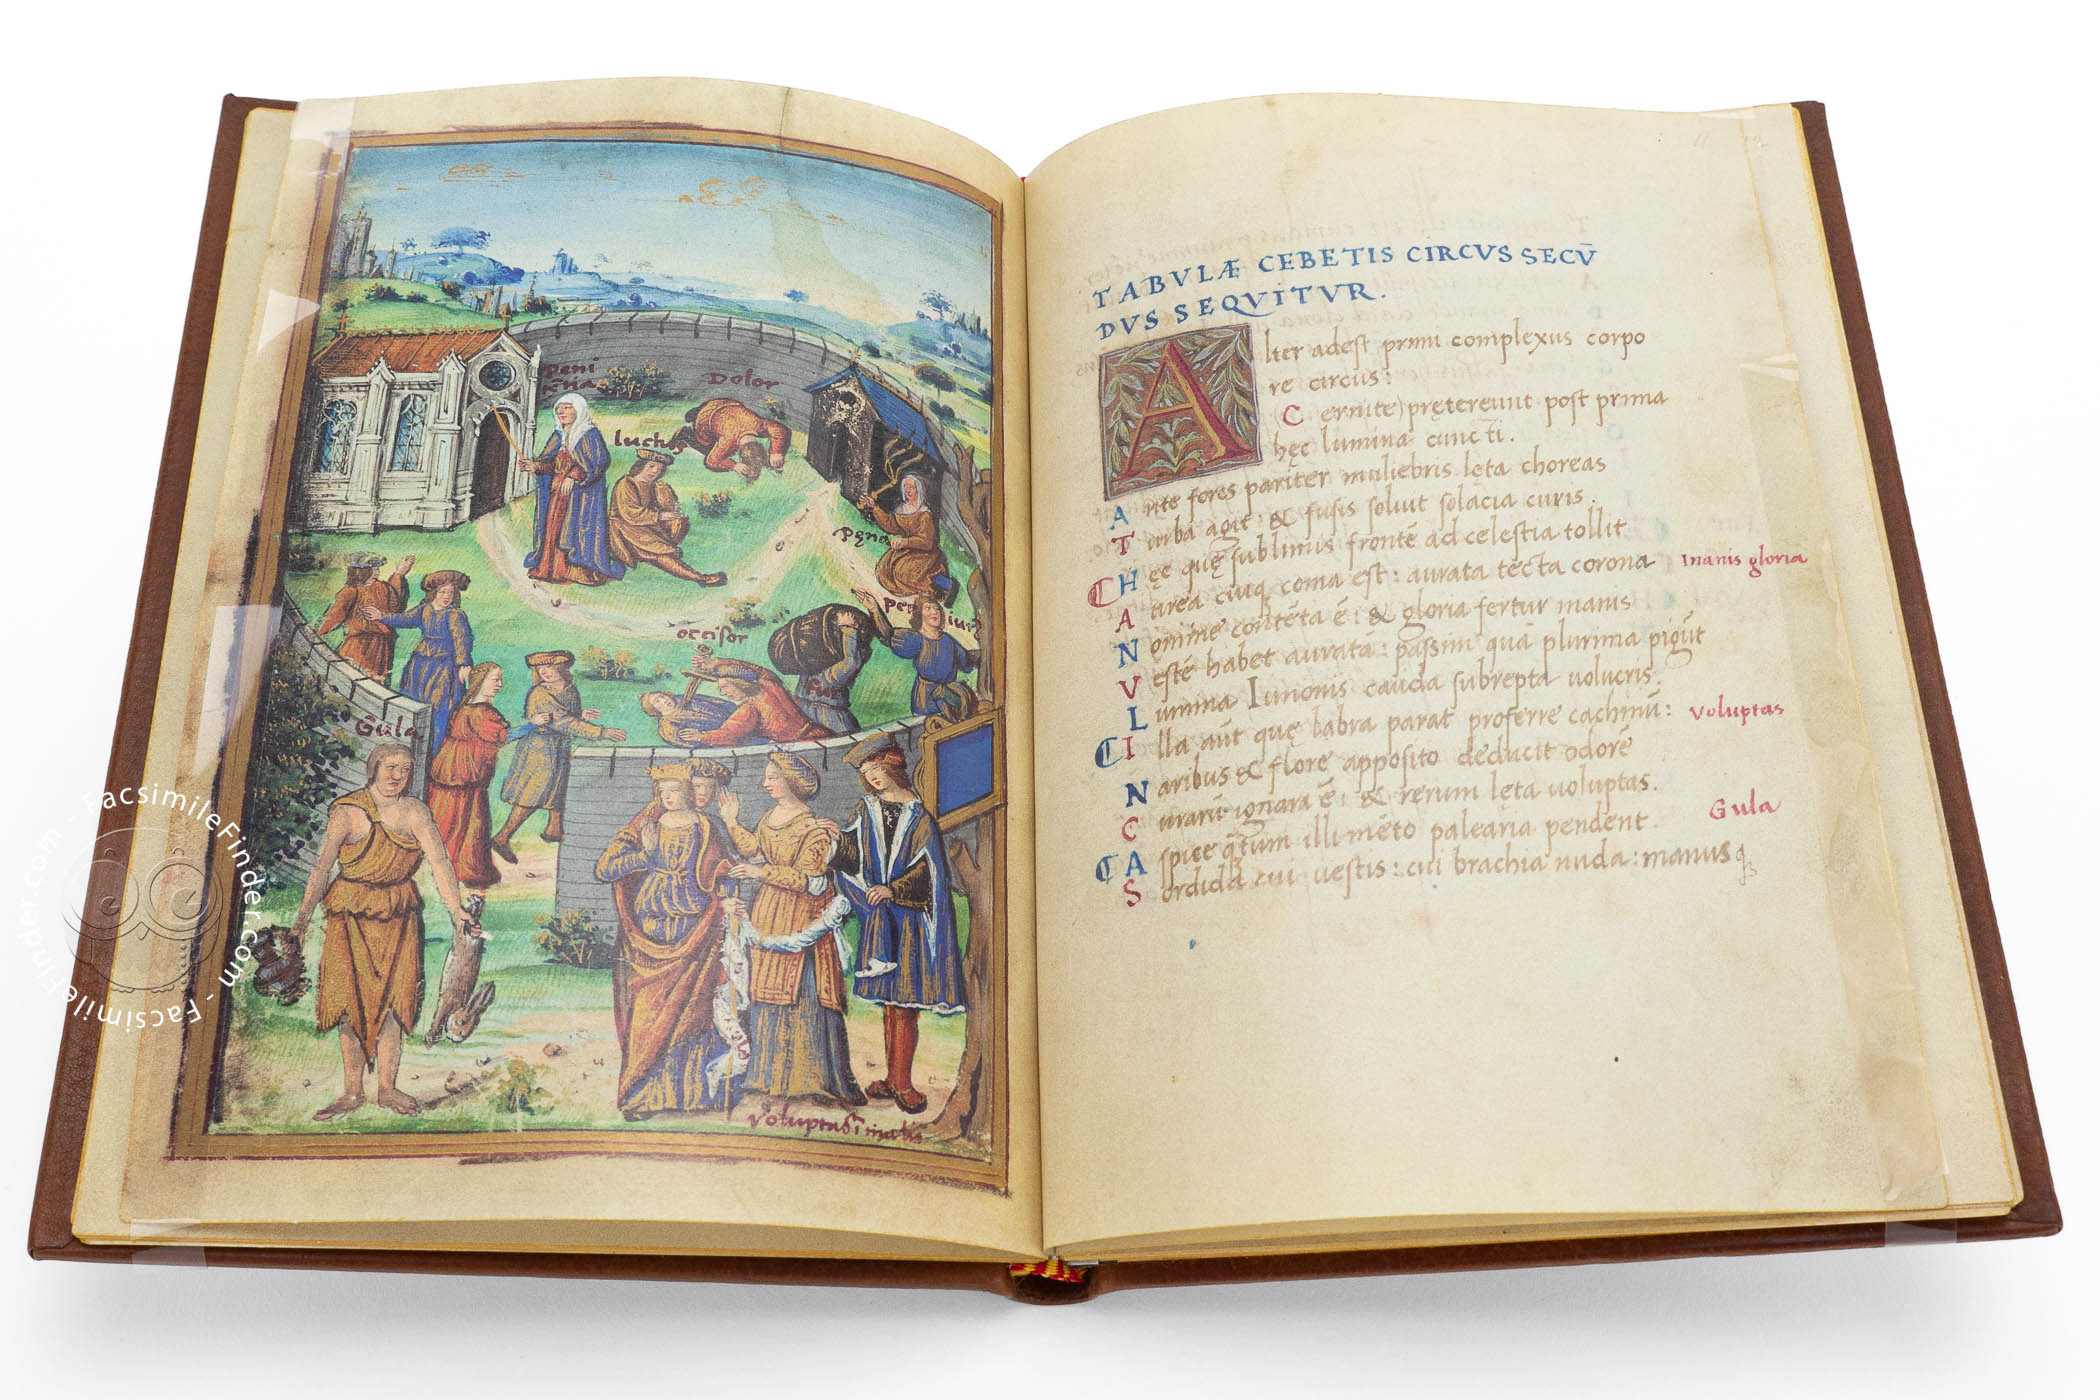 peni
tētia
Dolor
luctus
pęna
per iur
occisor
fur
Gula
voluptas
TABVLÆ CEBETIS CIRCVS SECŪ
DVS SEQVITVR.
Alter adest primi complexus corpo
re circus:
Cernite prętereunt post prima
hęc lumina cuncti.
Ante fores pariter muliebris lęta choreas
Turba agit: & fusis soluit solacia curis.
Hęc quę sublimis frontē ad celestia tollit
Aurea cuiq coma est: aurata tecta corona
Inanis gloria
Nomine contēta ē: & gloria fertur inanis
Vestē habet auratā: passim quā plurima pigūt
Lumina Iunonis cauda subrepta uolucris.
Illa aūt quę labra parat proferre cachinū:
Voluptas
Naribus & flore apposito deducit odorē
Curarū ignara ē: & rerum lęta uoluptas.
Aspice q̄tum illi mēto palearia pendent.
Gula
Sordida cui uestis: cui brachia nuda: manus q;
FacsimileFinder.com - FacsimileFinder.com - FacsimileFinder.com